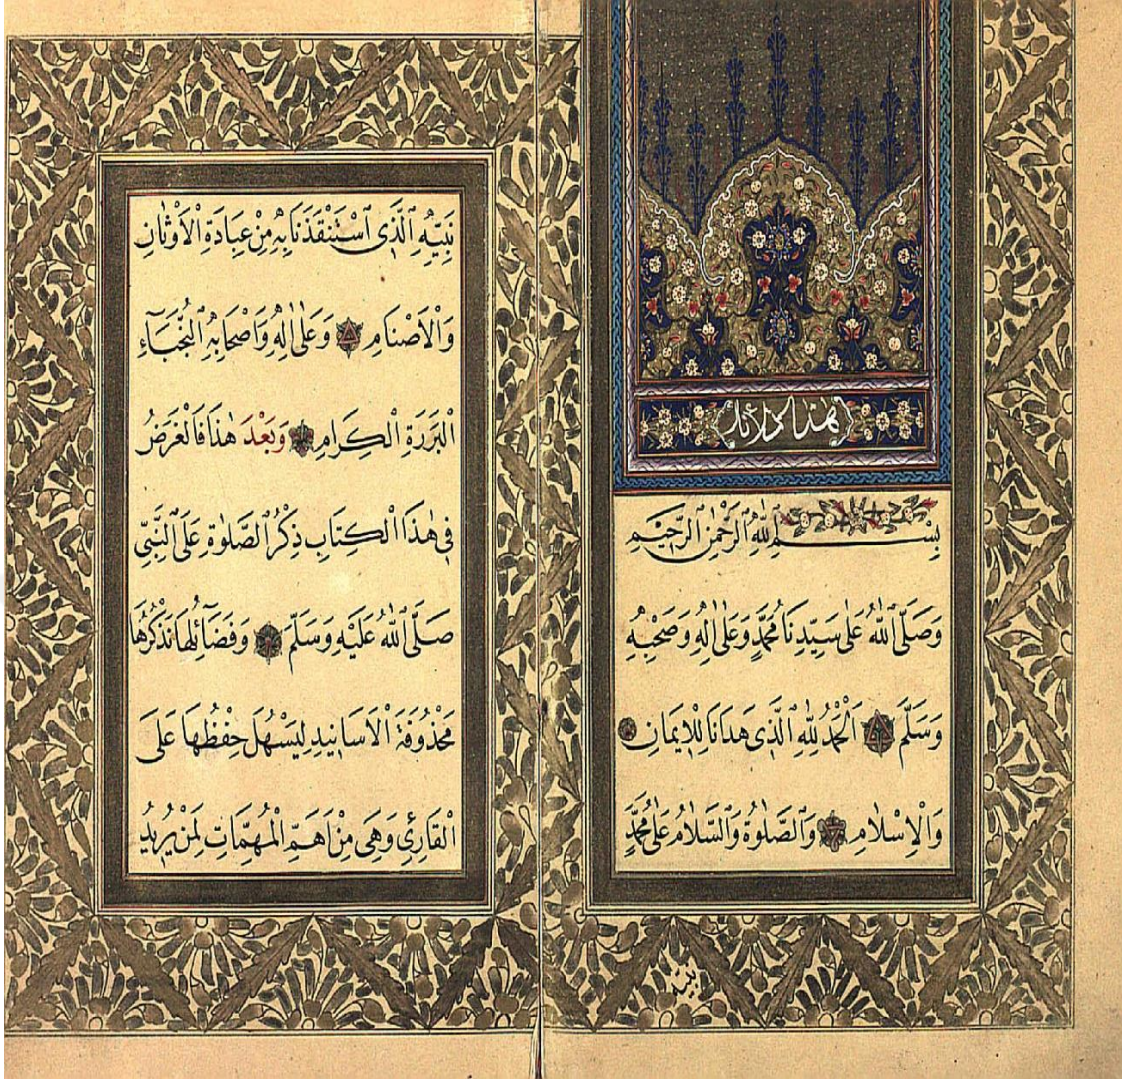 بِسْــمِ ٱللّٰهِ ٱلرَّحْمٰنِ ٱلرَّحِيْمِ
وَصَلَّى ٱللّٰهُ عَلٰى سَيِّدِنَا مُحَمَّدٍ وَعَلٰى اٰلِهٖ وَصَحْبِهٖ
وَسَلَّمَ اَلْحَمْدُ لِلّٰهِ ٱلَّذِى هَدَانَا لِلْاِيمَانِ
وَالْاِسْلَامِ وَٱلصَّلٰوةُ وَٱلسَّلَامُ عَلٰى مُحَمَّدٍ
نبيه
نَبِيِّهِ ٱلَّذِى ٱسْتَنْقَذَنَا بِهٖ مِنْ عِبَادَةِ الْاَوْثَانِ
وَالْاَصْنَامِ وَعَلٰى اٰلِهٖ وَاَصْحَابِهِ ٱلنُّجَبَآءِ
الْبَرَرَةِ الْكِرَامِ وَبَعْدَ هٰذَا فَالْغَرَضُ
فِى هٰذَا الْكِتَابِ ذِكْرُ ٱلصَّلٰوةِ عَلَى ٱلنَّبِىِّ
صَلَّى ٱللّٰهُ عَلَيْهِ وَسَلَّمَ وَفَضَآئِلُهَا نَذْكُرُهَا
مَحْذُوفَةَ الْاَسَانِيدِ لِيَسْهُلَ حِفْظُهَا عَلَى
الْقَارِئِ وَهِىَ مِنْ اَهَمِّ الْمُهِمَّاتِ لِمَنْ يُرِيدُ